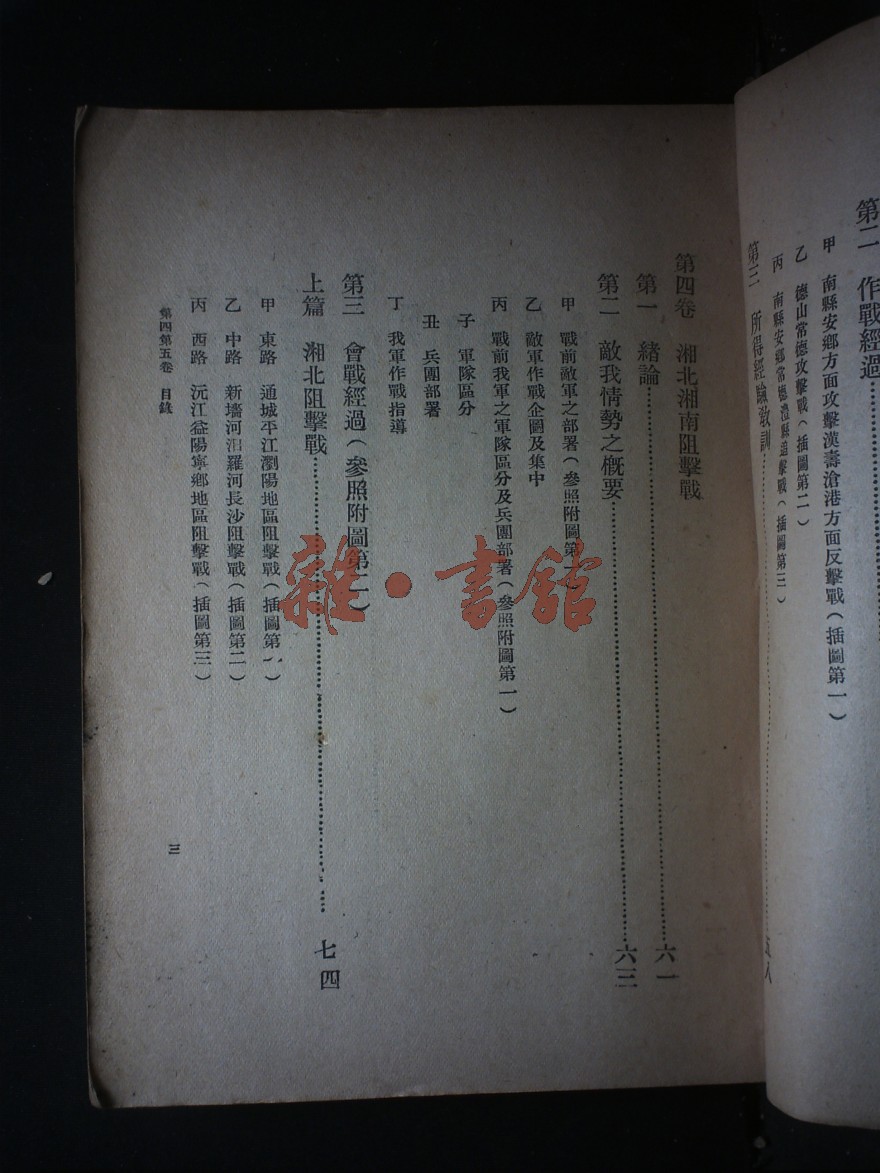 第二 作戰經過
甲 南縣安鄉方面攻擊漢壽滄港方面反擊戰(插圖第一)
乙 德山常德攻擊戰(插圖第二)
丙 南縣安鄉常德澧縣追擊戰(插圖第三)
第三 所得經驗教訓…………八
第四卷 湘北湘南阻擊戰
第一 緒論…………六一
第二 敵我情勢之概要…………六三
甲 戰前敵軍之部署(參照附圖第一)
乙 敵軍作戰企圖及集中
丙 戰前我軍之軍隊區分及兵團部署(參照附圖第一)
子 軍隊區分
丑 兵團部署
丁 我軍作戰指導
第三 會戰經過(參照附圖第二)
上篇 湘北阻擊戰…………七四
甲 東路 通城平江瀏陽地區阻擊戰(插圖第一)
乙 中路 新墻河汨羅河長沙阻擊戰(插圖第二)
丙 西路 沅江益陽寧鄉地區阻擊戰(插圖第三)
第四第五卷 目錄
三
雜·書館